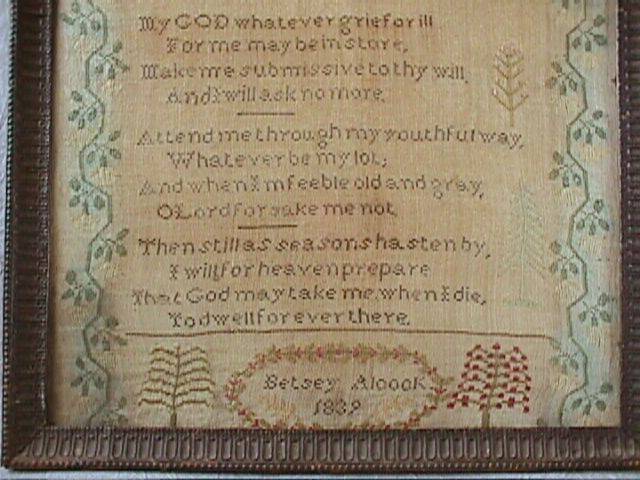 My GOD whatever grief or ill
For me may be in store,
Make me submissive to thy will,
And I will ask no more.
Attend me through my youthful way,
Whatever be my lot;
And when I'm feeble old and gray,
O Lord forsake me not.
Then still as seasons hasten by,
I will for heaven prepare
That God may take me when I die,
To dwell for ever there.
Betsey Alcock
1839